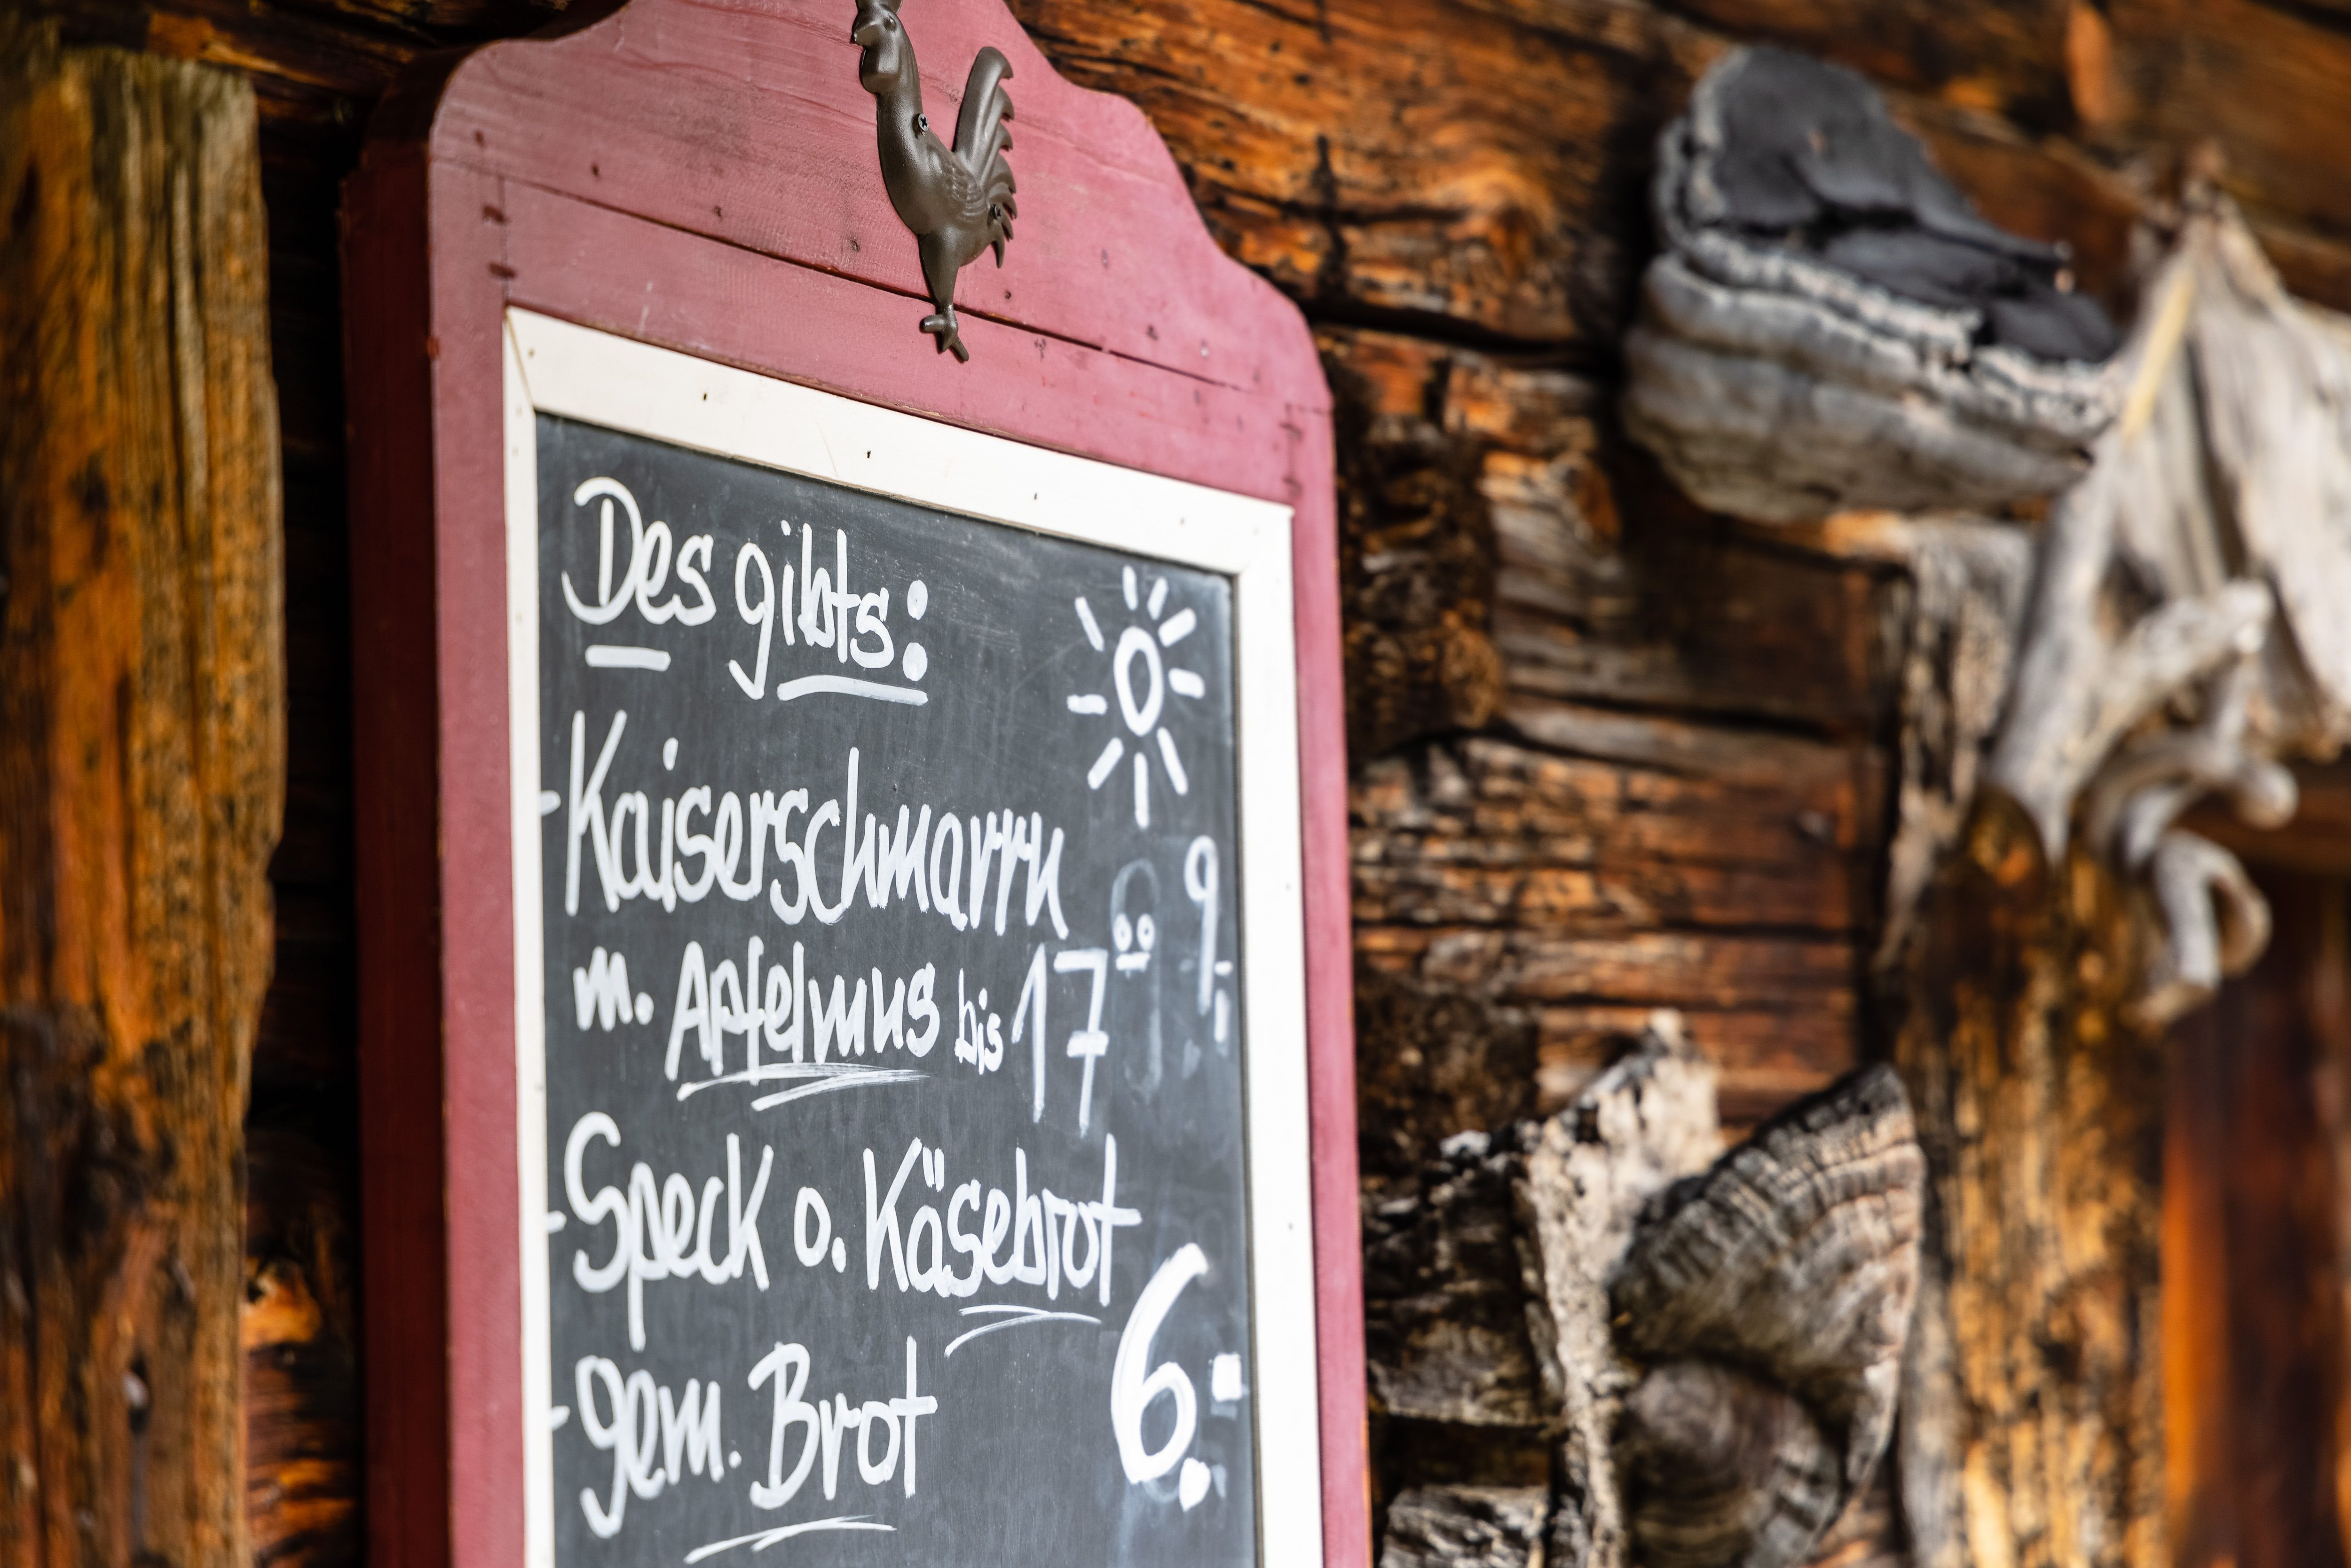 Des gibts:
- Kaiserschmarrn 9,-
m. Apfelmus bis 17⁰⁰
- Speck o. Käsebrot
- gem. Brot 6.-